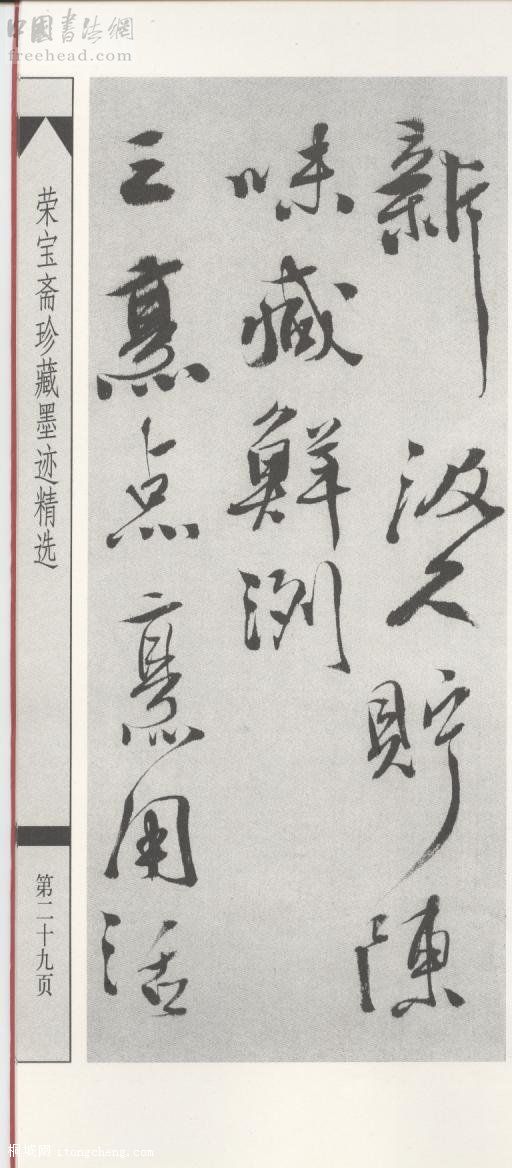 中國書法網
freehead.com
新汲久貯陳
味減鮮洌
三烹点烹用活
荣宝斋珍藏墨迹精选
第二十九页
桐城网 itongcheng.com